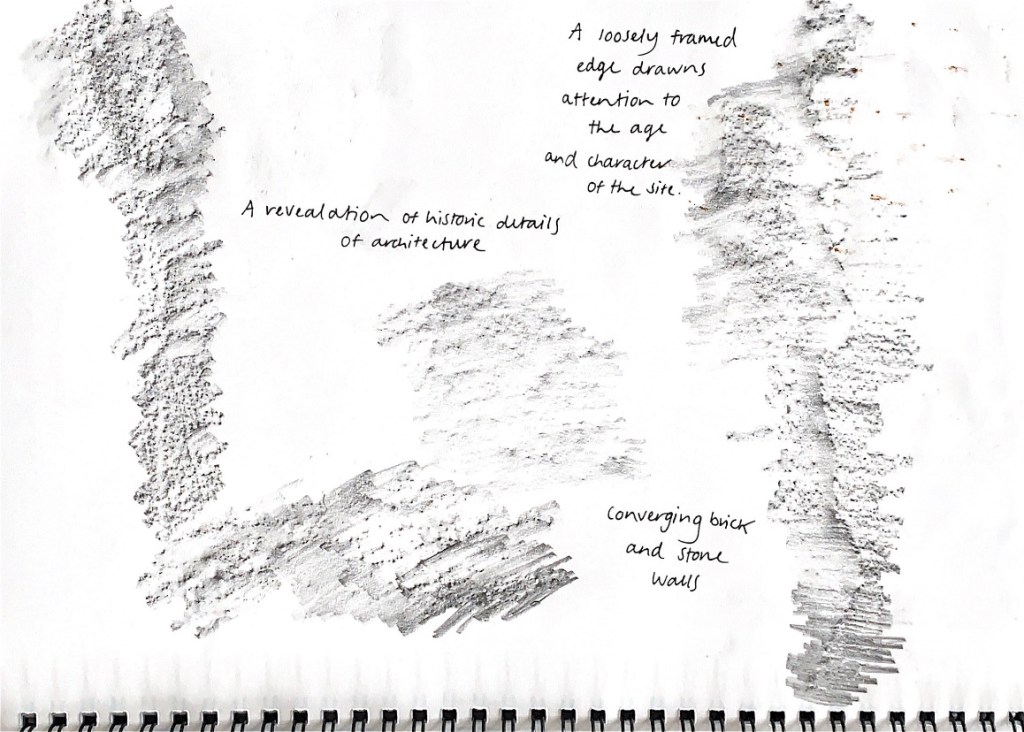 A loosely framed
edge drawns
attention to
the age
and character
of the site.
A revealation of historic details
of architecture
Converging brick
and stone
walls